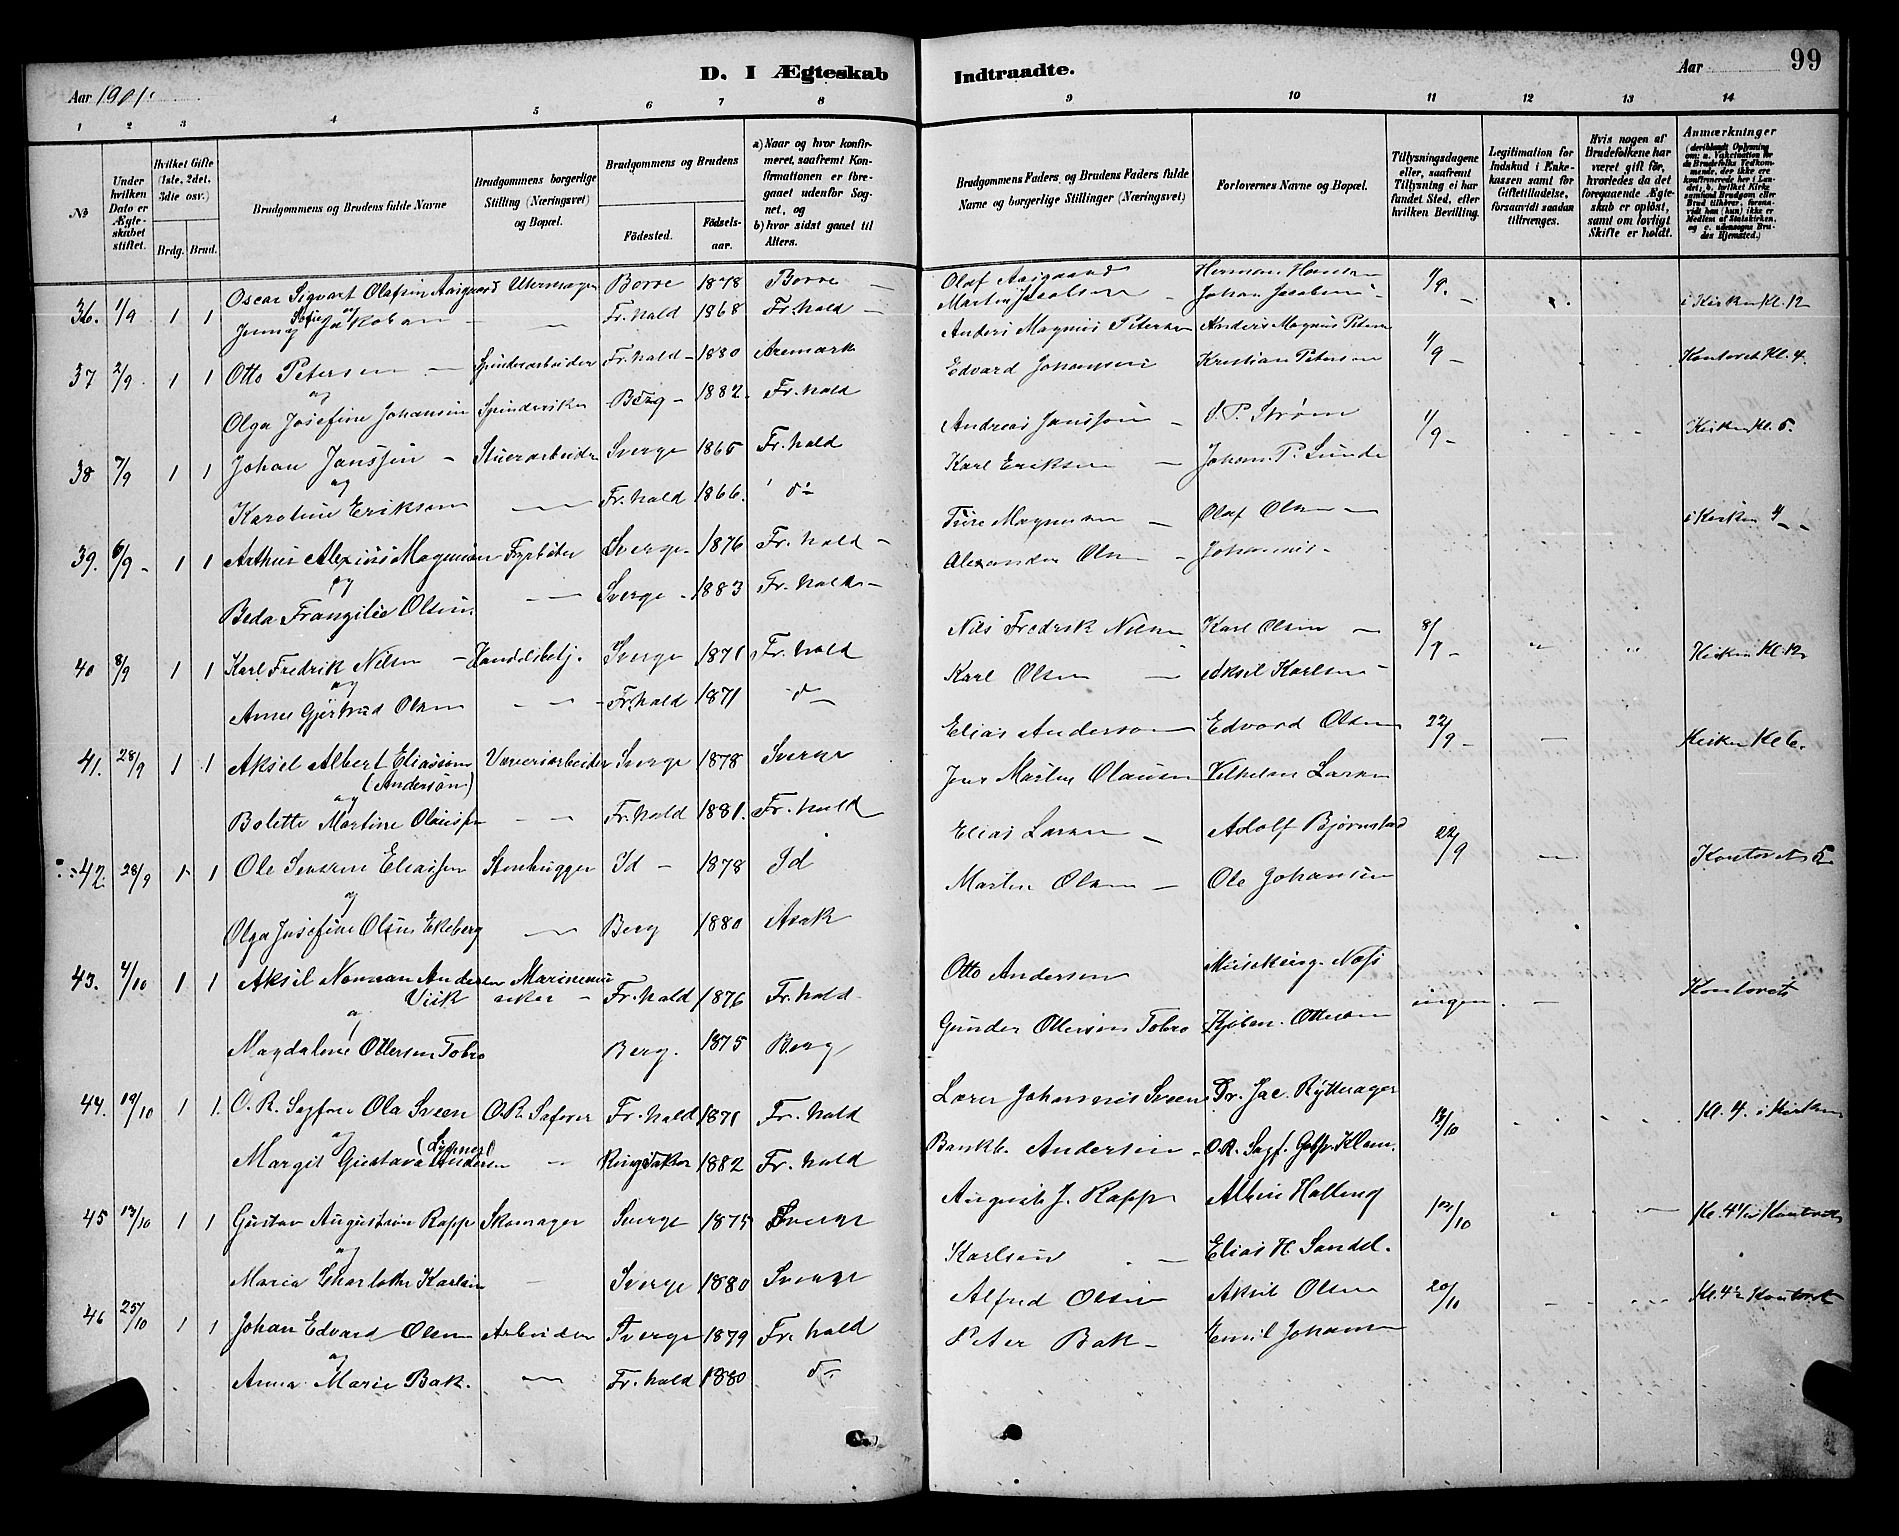 D. I Ægteskab Indtraadte.
Aar 1901. Aar 99
1 2 3 4 5 6 7 8 9 10 11 12 13 14
№
Under hvilken Dato er Ægteskabet stiftet.
Hvilket Gifte (1ste, 2det, 3die osv.)
Brdg. Brud.
Brudgommens og Brudens fulde Navne
Brudgommens borgerlige Stilling (Næringsvei) og Bopæl.
Brudgommens og Brudens
Fødested. Fødselsaar.
a) Naar og hvor konfirmeret, saafremt Konfirmationen er foregaaet udenfor Sognet, og
b) hvor sidst gaaet til Alters.
Brudgommens Faders og Brudens Faders fulde Navne og borgerlige Stillinger (Næringsvei)
Forlovernes Navne og Bopæl.
Tillysningsdagene eller, saafremt Tillysning ei har fundet Sted, efter hvilken Bevilling.
Legitimation for Indskud i Enkekassen samt for Giftetilladelse, forsaavidt saadan tiltrænges.
Hvis nogen af Brudefolkene har været gift før, hvorledes da det foregaaende Ægteskab er opløst, samt om lovligt Skifte er holdt.
Anmærkninger
36. 1/9 1 1 Oscar Sigvart Olafsen Aasgaard Uhrmager Borre 1878 Borre Olaf Aasgaard Herman Hansen 1/9. i Kirken Kl. 12
og
Jenny Sofie Jakobsen Fr.hald 1868 Fr.hald Martin Jacobsen Johan Jacobsen
37 2/9. 1 1 Otto Petersen Spinderarbeider Fr.hald 1880 Aremark Anders Magnus Petersen Anders Magnus Petersen 1/9 Kontoret Kl. 4.
og
Olga Josefine Johansen Spinderiske Berg 1882. Fr.hald Edvard Johansen Kristian Petersen
38 7/9 1 1 Johan Janssen Stuerarbeider Sverge 1865 Fr.hald Andreas Janssen S. P. Strøm 1/9 Kirken Kl. 5.
og
Karoline Eriksen Fr.hald 1866. do Karl Eriksen Johan P. Lunde
39. 6/9 1 1 Arthur Alexius Magnusen Fyrbøter Sverge 1876 Fr.hald Ture Magnusen Olaf Olsen i Kirken 4
og
Beda Frangilie Olsen. Sverge 1883 Fr.hald Alexander Olsen Johannes
40 8/9 1 1 Karl Fredrik Nilsen Handelsbetj. Sverge 1871 Fr.hald Nils Fredrik Nilsen Karl Olsen 8/9 Kirken Kl. 12
og
Anne Gjertrud Olsen Fr.hald 1871 do Karl Olsen Aksel Karlsen
41. 28/9 1 1 Aksel Albert Eliassen Væveriarbeider Sverge 1878 Sverge Elias Anderson Edvard Olsen 22/9 Kirken Kl 6.
(Anderson)
og
Bolette Martine Olaussen Fr.hald 1881. Fr.hald Jens Martin Olausen Vilhelm Larsen
42. 28/9 1 1 Ole Severin Eliassen Stenhugger Id 1878 Id Elias Larsen Adolf Bjørnstad 22/9 Kontoret 5
og
Olga Josefine Olsen Ekeberg Berg 1880 Asak Martin Olsen Ole Johansen
43. 4/10 1 1 Aksel Norman Andersen Marinemusiker Fr.hald 1876 Fr.hald Otto Andersen ingen Kontoret
Viik
og
Magdalene Ottersen Tobro Berg. 1875 Berg Gunder Ottersen Tobro Kjøbm. Ottesen
44. 19/10 1 1. O. R. Sagfører Ola Sveen O.R. Safører Fr.hald 1871 Fr.hald Lærer Johannes Sveen Gr. Jac. Rytterager 13/10 Kl. 4. i Kirken
og
Margit Gustava Andersen Ringsaker 1882 Fr.hald Bankb. Andersen O.R. Sagf.
45 13/10 1 1 Gustav Augustsen Rapp Skomager Sverge 1875 Sverge August J. Rapp Albin Halling 13/10 Kl. 4 1/2 Kontoret
og
Maria Charlotte Karlsen Sverge 1880 Sverge Karlsen Elias H. Sandel.
46 25/10 1 1 Johan Edvard Olsen Arbeider Sverge 1879 Fr.hald Alfred Olsen Aksel Olsen 20/10 Kl. 4 1/2 Kontoret
og
Anna Marie Bak. Fr.hald 1880 do Peter Bak Emil Johansen